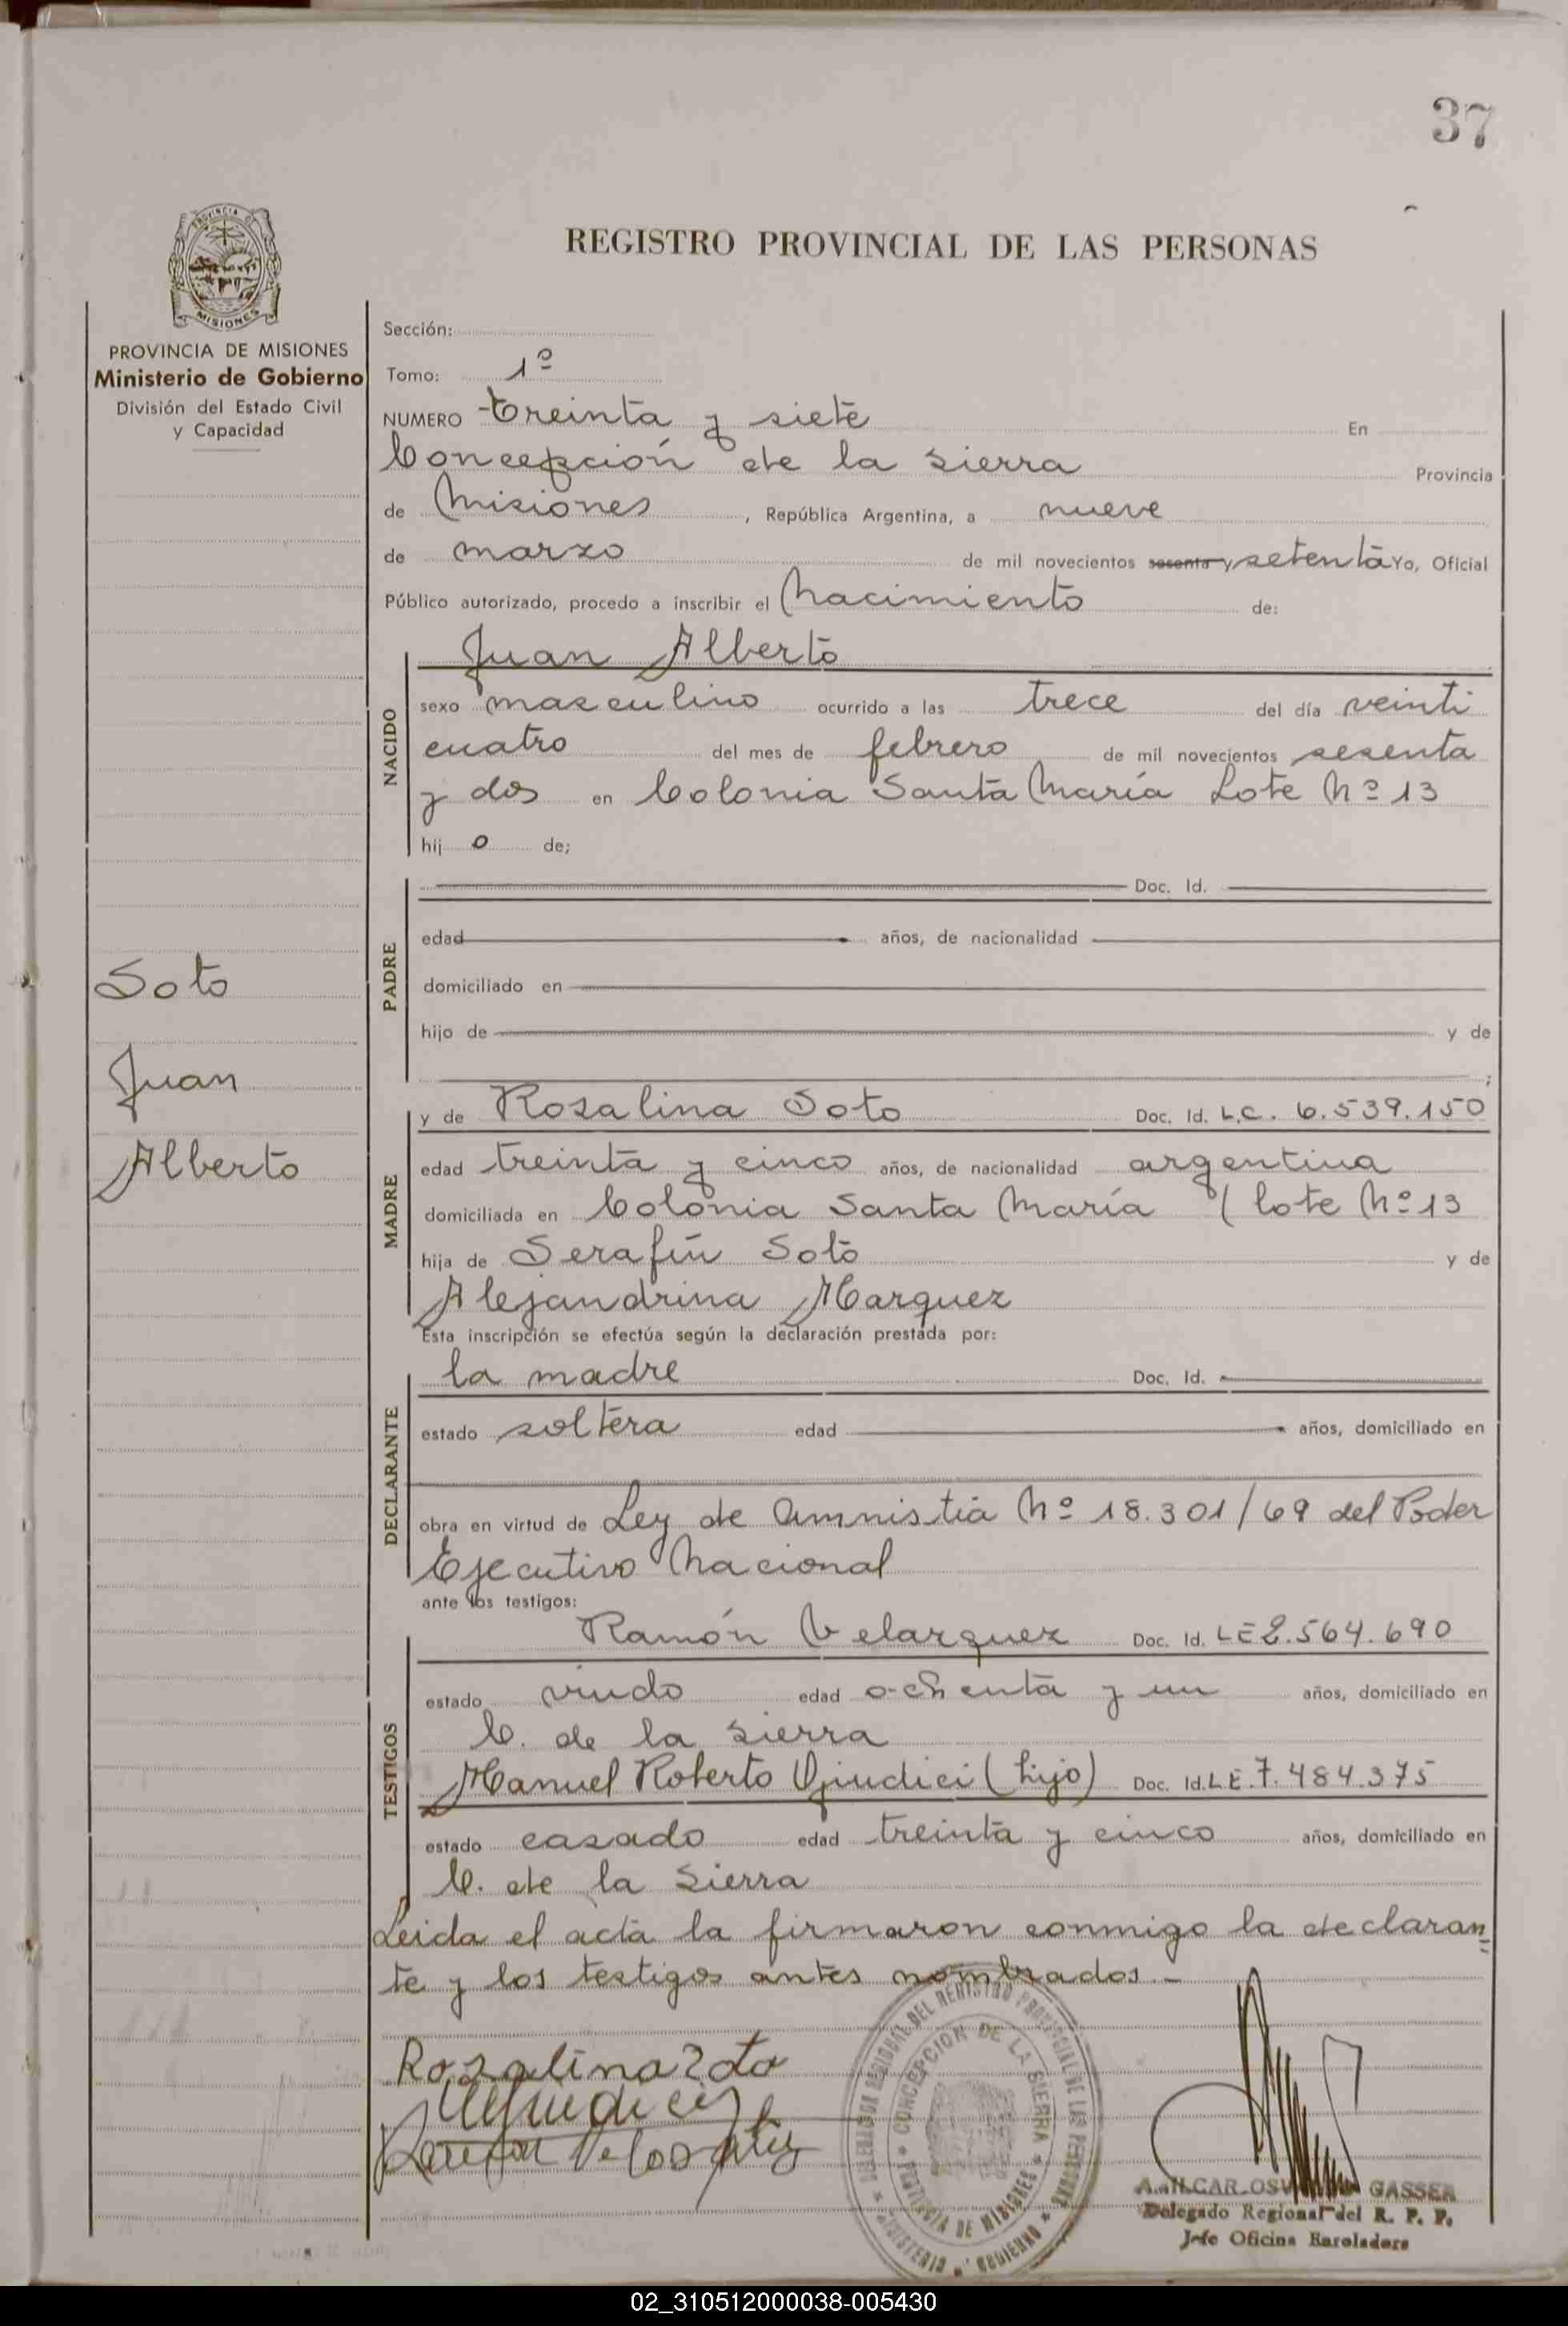 37
PROVINCIA DE
MISIONES
REGISTRO PROVINCIAL DE LAS PERSONAS
PROVINCIA DE MISIONES
Ministerio de Gobierno
División del Estado Civil
y Capacidad
Soto
Juan
Alberto
Sección:
Tomo: 1º
NUMERO treinta y siete En
Concepción de la Sierra Provincia
de Misiones, República Argentina, a nueve
de marzo de mil novecientos sesenta y setenta Yo, Oficial
Público autorizado, procedo a inscribir el Nacimiento de:
NACIDO
Juan Alberto
sexo masculino ocurrido a las trece del día veinti
cuatro del mes de febrero de mil novecientos sesenta
y dos en Colonia Santa María Lote Nº 13
hij o de;
PADRE
Doc. Id.
edad años, de nacionalidad
domiciliado en
hijo de y de
;
MADRE
y de Rosalina Soto Doc. Id. L.C. 6.539.150
edad treinta y cinco años, de nacionalidad argentina
domiciliada en Colonia Santa María / lote Nº 13
hija de Serafín Soto y de
Alejandrina Marquez
Esta inscripción se efectúa según la declaración prestada por:
DECLARANTE
la madre Doc. Id.
estado soltera edad años, domiciliado en
obra en virtud de Ley de Amnistia Nº 18.301/69 del Poder
Ejecutivo Nacional
ante los testigos:
TESTIGOS
Ramón Velazquez Doc. Id. LE 2.564.690
estado viudo edad ochenta y un años, domiciliado en
C. de la Sierra
Manuel Roberto Giudici (hijo) Doc. Id. L.E. 7.484.375
estado casado edad treinta y cinco años, domiciliado en
C. de la Sierra
Leida el acta la firmaron conmigo la declaran
te y los testigos antes nombrados.-
Rosalina Soto
DELEGACION REGIONAL DEL REGISTRO PROVINCIAL DE LAS PERSONAS
CONCEPCION DE LA SIERRA
PROVINCIA DE MISIONES
MINISTERIO DE GOBIERNO
GASSER
Delegado Regional del R. P. P.
Jefe Oficina
02_310512000038-005430